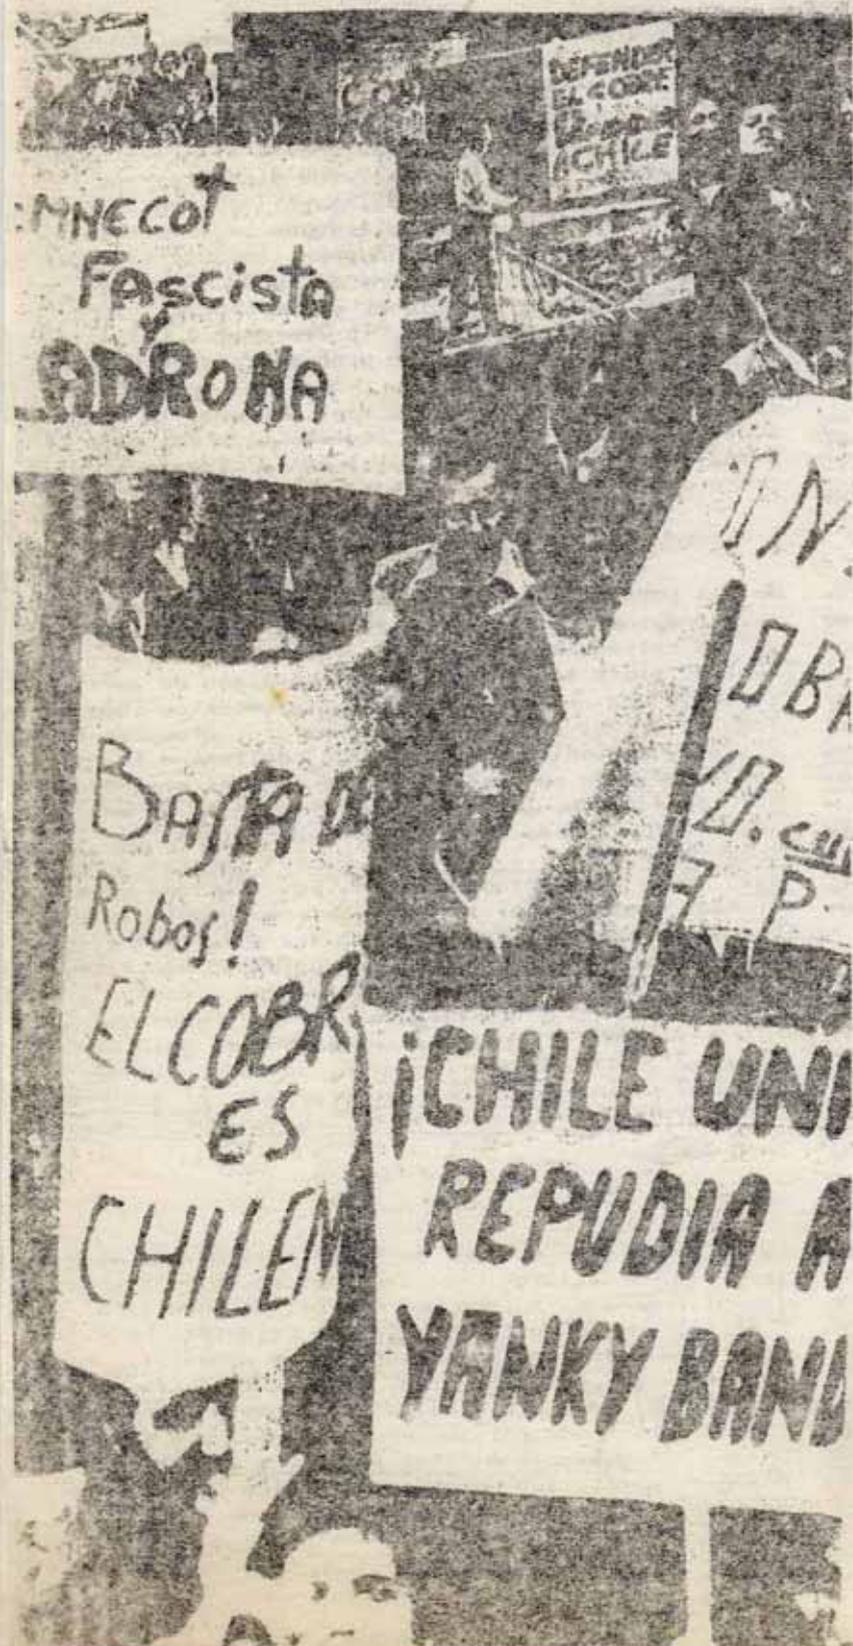 DEFENDER
EL COBRE
ACHILE
MNECOT
FASCISTA
Y
LADRONA
BASTA DE
Robos!
EL COBR
ES
CHILEN
IN
OBR
YO. CU
7 P.
¡CHILE UNI
REPUDIA A
YANKY BAND